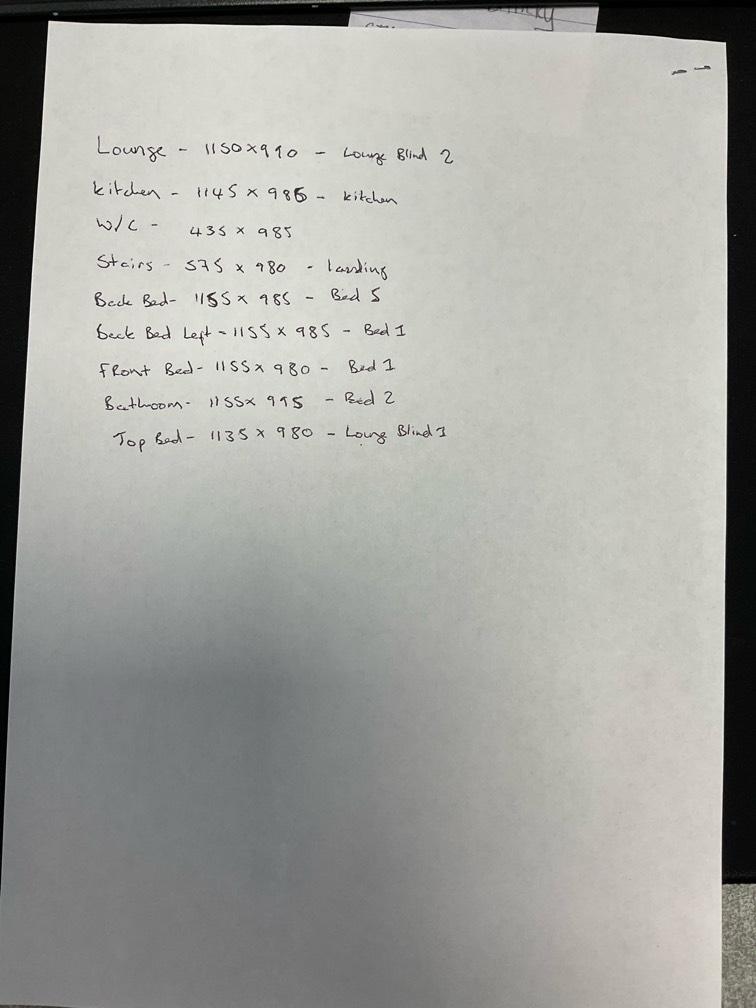 Lounge - 1150 x 990 - Lounge Blind 2
kitchen - 1145 x 985 - kitchen
W/C - 435 x 985
Stairs - 575 x 980 - landing
Back Bed - 1155 x 985 - Bed 5
Back Bed Left - 1155 x 985 - Bed 1
Front Bed - 1155 x 980 - Bed 1
Bathroom - 1155 x 995 - Bed 2
Top Bed - 1135 x 980 - Loung Blind 1